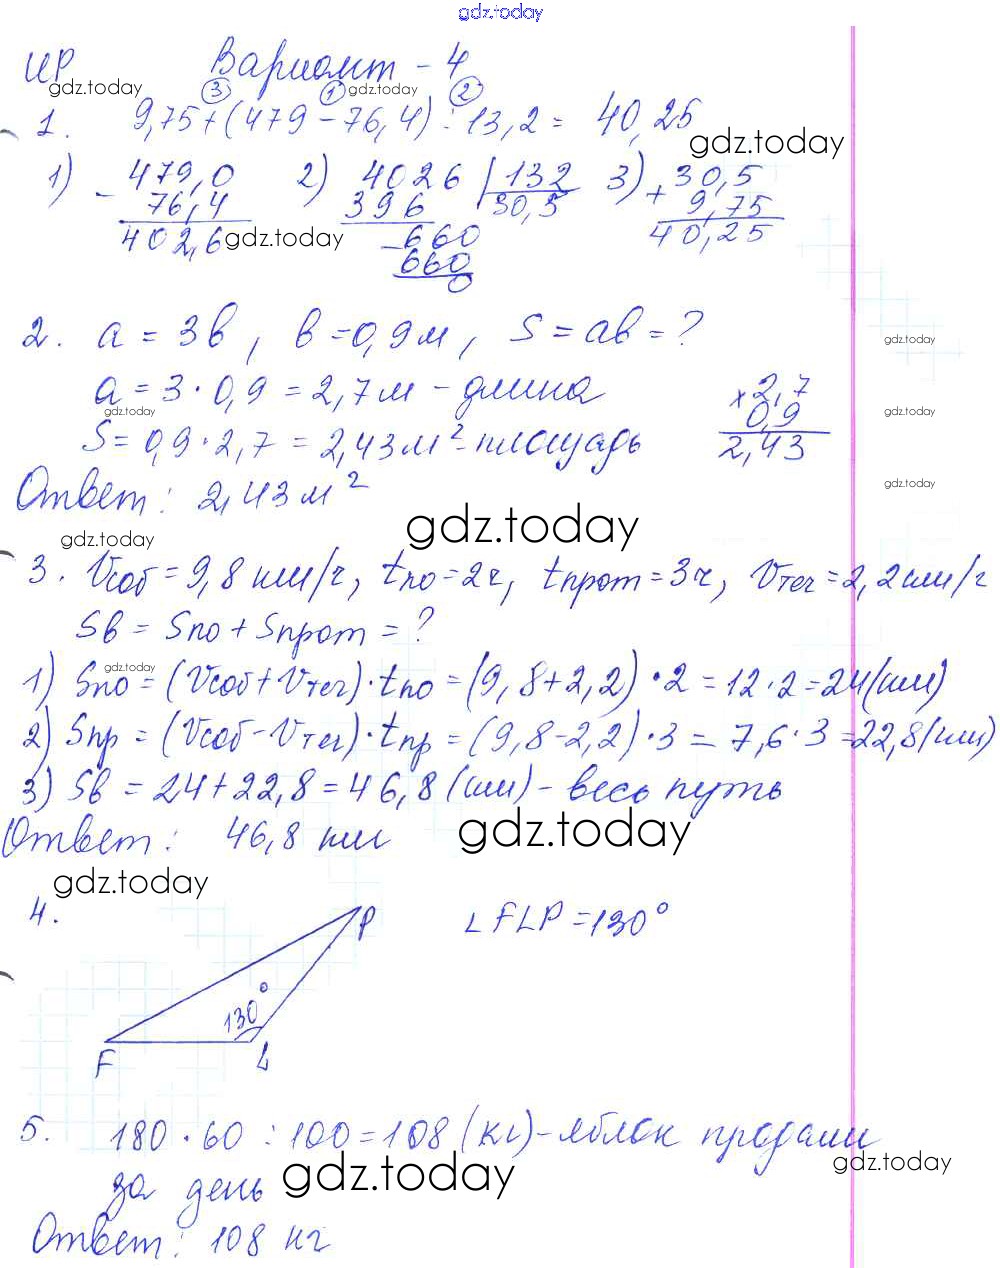 gdz.today
ИР Вариант - 4
gdz.today gdz.today
3 1 2
1. 9,75+(479-76,4):13,2= 40,25
gdz.today
1) - 479,0 2) 4026 | 132 3) + 30,5
76,4 396 30,5 9,75
402,6 gdz.today - 660 40,25
660
0
2. a = 3b, b=0,9м, S=ab=?
gdz.today
a = 3·0,9 = 2,7м - длина × 2,7
gdz.today 0,9 gdz.today
S= 0,9·2,7 = 2,43м²- площадь 2,43
Ответ: 2,43м² gdz.today
gdz.today
gdz.today
3. Vсоб=9,8км/ч, tпо=2ч, tпрот=3ч, Vтеч=2,2км/ч
Sв = Sпо + Sпрот = ?
gdz.today
1) Sпо=(Vсоб+Vтеч)·tпо=(9,8+2,2)·2=12·2=24(км)
2) Sпр=(Vсоб-Vтеч)·tпр=(9,8-2,2)·3=7,6·3=22,8(км)
3) Sв = 24+22,8=46,8(км)- весь путь
Ответ: 46,8 км gdz.today
gdz.today
4. P ∠FLP=130°
130°
F L
5. 180·60:100=108(кг)-яблок продали
gdz.today
за день gdz.today
Ответ: 108 кг